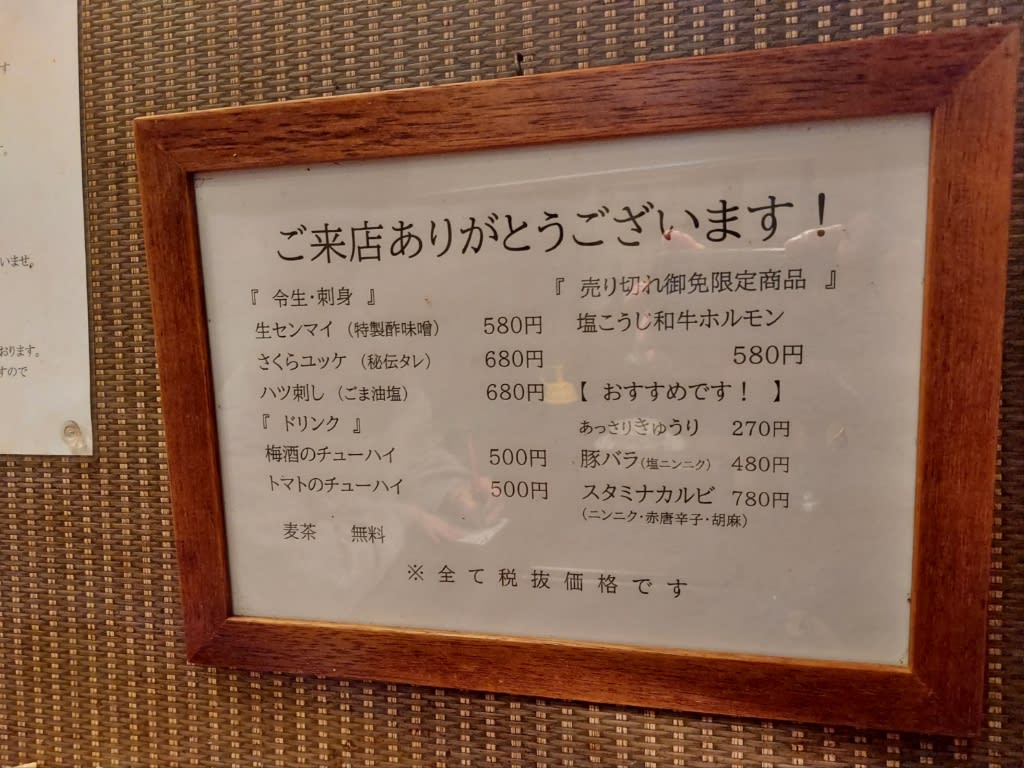 ご来店ありがとうございます！
『 令生・刺身 』
生センマイ（特製酢味噌） 580円
さくらユッケ（秘伝タレ） 680円
ハツ刺し（ごま油塩） 680円
『 ドリンク 』
梅酒のチューハイ 500円
トマトのチューハイ 500円
麦茶 無料
『 売り切れ御免限定商品 』
塩こうじ和牛ホルモン
580円
【 おすすめです！ 】
あっさりきゅうり 270円
豚バラ（塩ニンニク） 480円
スタミナカルビ 780円
（ニンニク・赤唐辛子・胡麻）
※全て税抜価格です
す
。
いませ。
おります。
すので